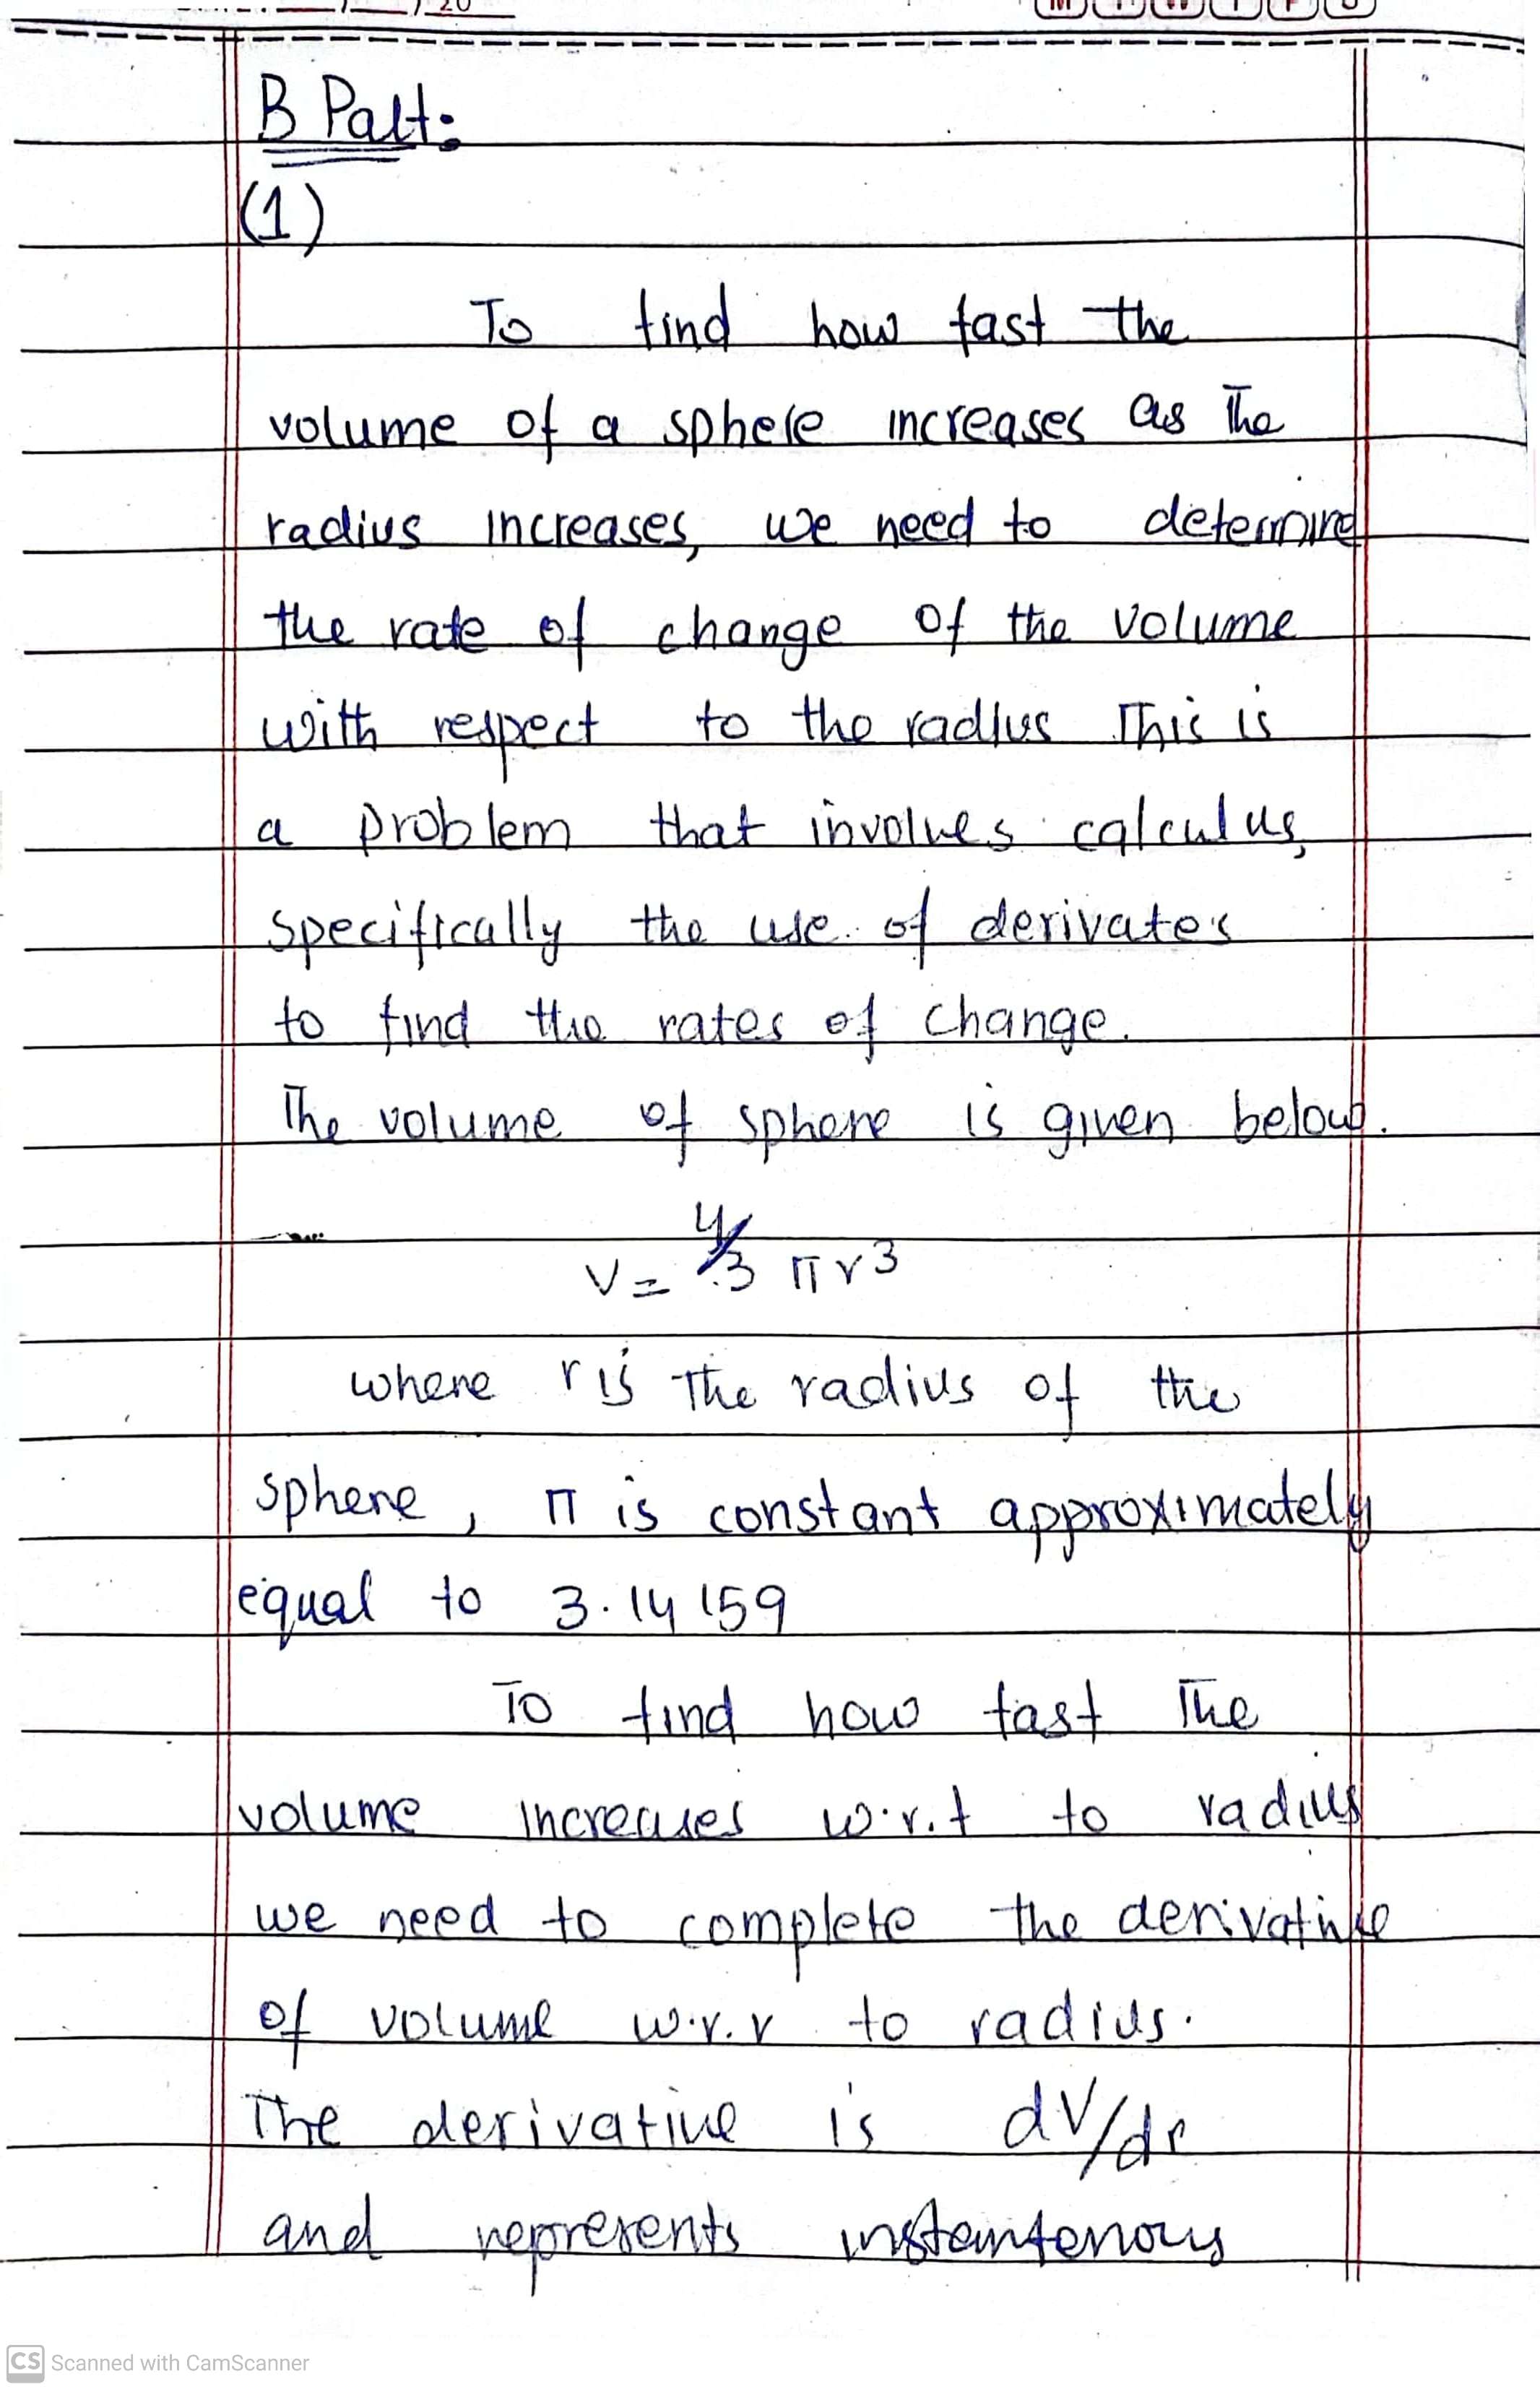 B Part:
(1)
To find how fast the
volume of a sphere increases as the
radius increases, we need to determine
the rate of change of the volume
with respect to the radius This is
a problem that involves calculus,
specifically the use of derivates
to find the rates of change.
The volume of sphere is given below.
V = 4/3 π r3
where r is the radius of the
sphere, π is constant approximately
equal to 3.14159
To find how fast The
volume increases w.r.t to radius
we need to complete the derivative
of volume w.r.r to radius.
The derivative is dV/dr
and represents instantenous
CS Scanned with CamScanner